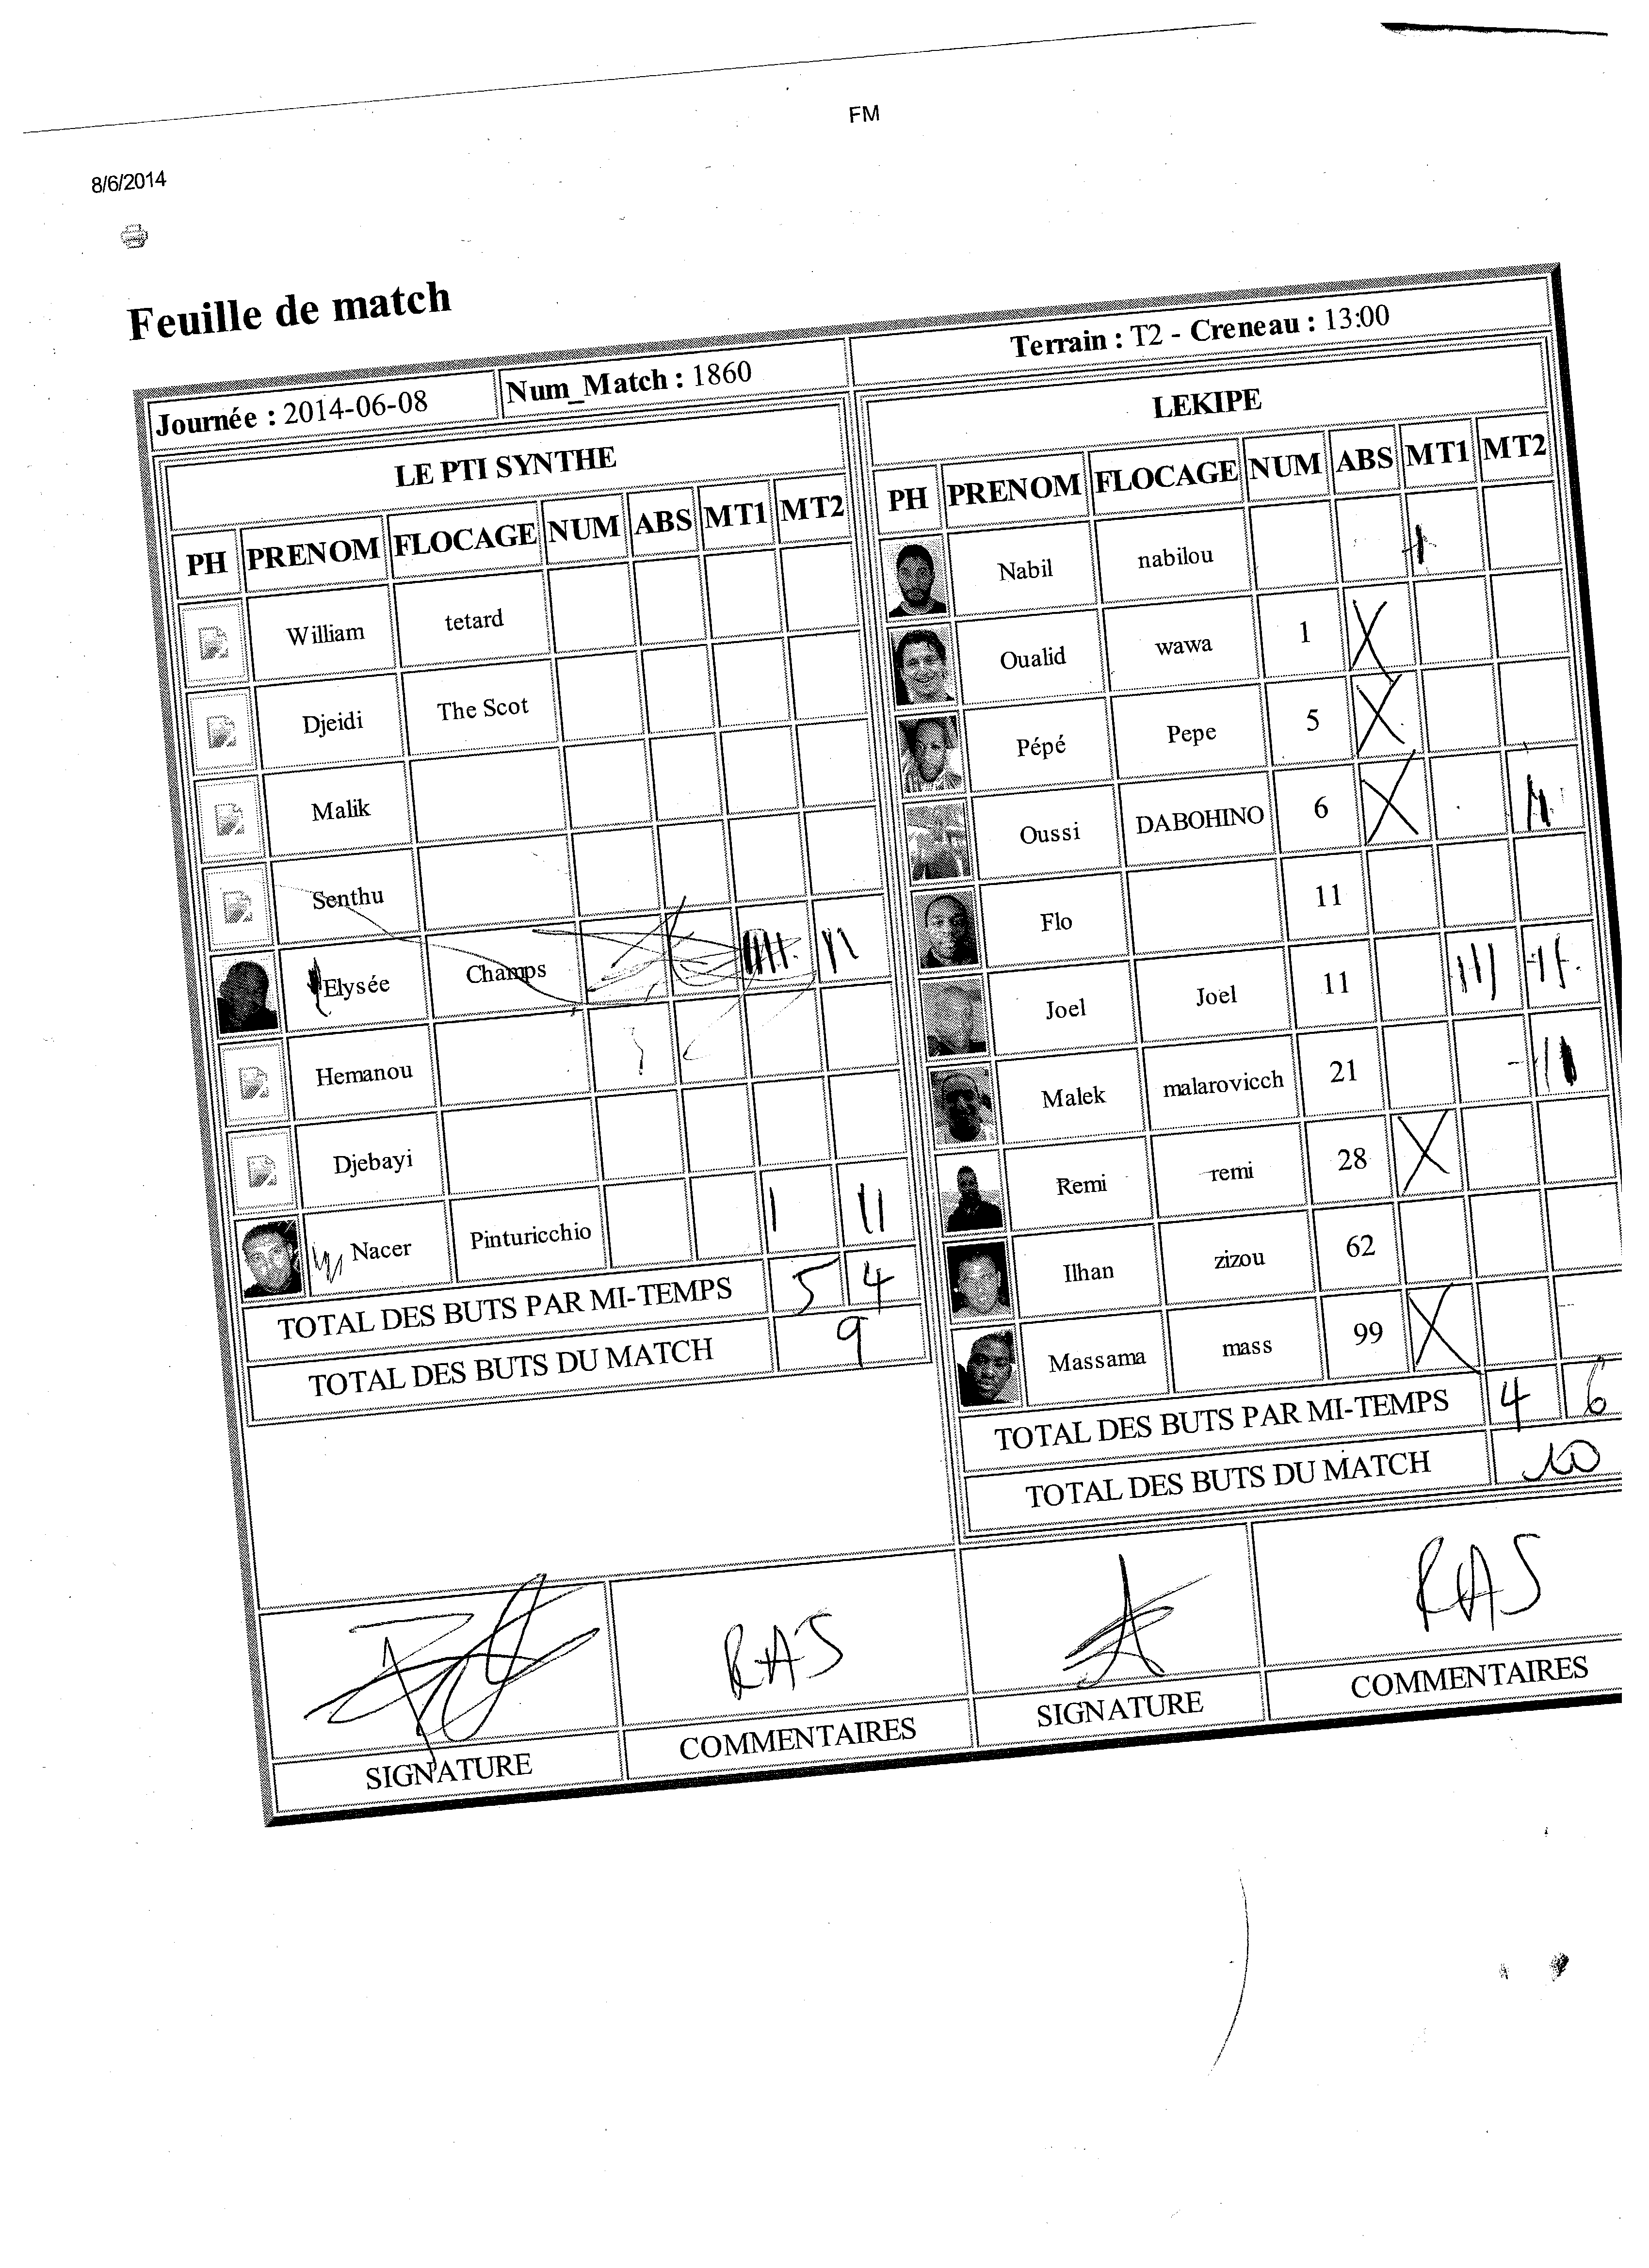 FM
8/6/2014
Feuille de match
Journée : 2014-06-08 Num_Match : 1860 Terrain : T2 - Creneau : 13:00
LE PTI SYNTHE
PH PRENOM FLOCAGE NUM ABS MT1 MT2
William tetard
Djeidi The Scot
Malik
Senthu
Elysée Champs IIII II
Hemanou
Djebayi
Nacer Pinturicchio I II
TOTAL DES BUTS PAR MI-TEMPS 5 4
TOTAL DES BUTS DU MATCH 9
LEKIPE
PH PRENOM FLOCAGE NUM ABS MT1 MT2
Nabil nabilou
Oualid wawa 1 X
Pépé Pepe 5 X
Oussi DABOHINO 6 X
Flo 11
Joel Joel 11 III
Malek malarovicch 21
Remi remi 28 X
Ilhan zizou 62
Massama mass 99 X
TOTAL DES BUTS PAR MI-TEMPS 4 6
TOTAL DES BUTS DU MATCH 10
RAS RAS
SIGNATURE COMMENTAIRES SIGNATURE COMMENTAIRES